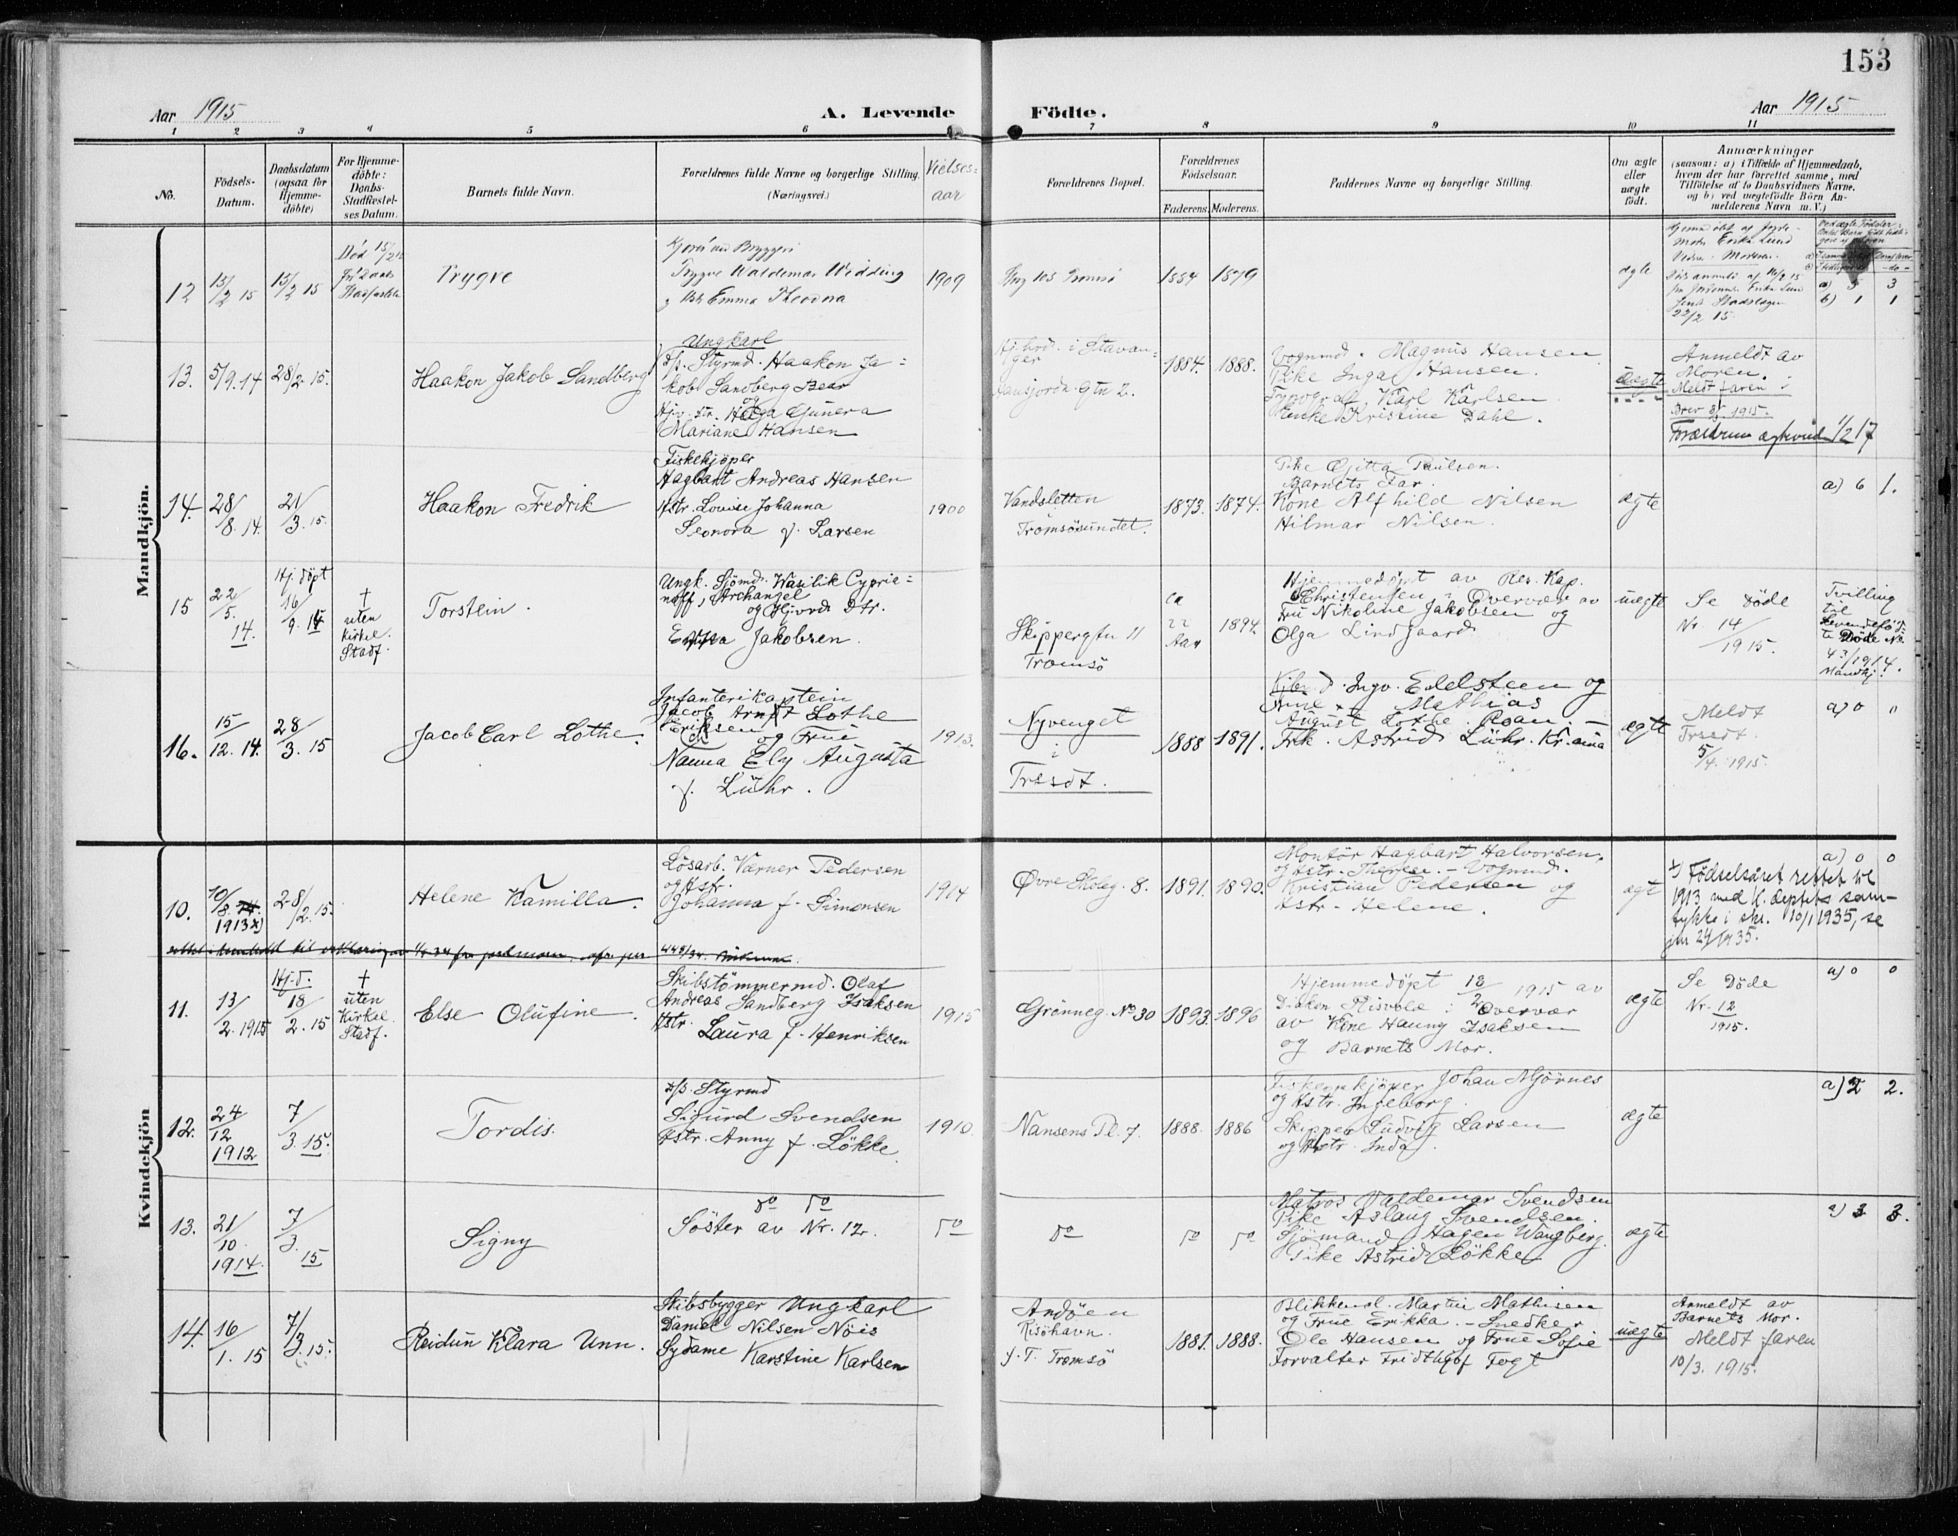 153
Aar 1915
A. Levende
Födte.
Aar 1915
1 2 3 4 5 6 7 8 9 10 11
No.
Födsels-
Datum.
Daabsdatum
(ogsaa for
Hjemme-
döbte)
For Hjemme-
döbte:
Daabs-
Stadfæstel-
ses Datum.
Barnets fulde Navn.
Forældrenes fulde Navne og borgerlige Stilling.
(Næringsvei.)
Vielses-
aar
Forældrenes Bopæl.
Forældrenes
Födselsaar.
Faderens. Moderens.
Faddernes Navne og borgerlige Stilling.
Om ægte
eller
uægte
födt.
Anmærkninger
(saasom: a) i Tilfælde af Hjemmedaab,
hvem der har forrettet samme, med
Tilföielse af to Daabsvidners Navne,
og b) ved uægtefödte Börn An-
melderens Navn m. V.)
Mandkjön.
12
15/2 15
15/2 15
Död 15/2 15
Trygve
Trygve Waldemar Widding
Emma Theodora
1909
Tromsö
1884 1879
ægte
Erika Lund
22/2 15.
a) 3 3
b) 1 1
13.
5/9.14
28/2 15.
Haakon Jakob Sandberg
Ungkarl
d/s. Styrmd. Haakon Ja-
kob Sandberg
og
Helga Gunera
Mariane Hansen
i Stavan-
ger
1884. 1888.
Vognmd. Magnus Hansen
Pike Inga Hansen.
Typograf Karl Karlsen
Enke Kristine Dahl.
uægte
Anmeldt av
Moren.
Meldt faren i
Brev 1915.
Forældrene 1/2 17
14.
28/8.14.
21/3.15.
Haakon Fredrik
Fiskekjöper
Hagbart Andreas Hansen
Hstr. Lovise Johanna
Leonora f. Larsen
1900
Vandsletten
Tromsösundet.
1873. 1874.
Pike Gitta Paulsen.
Barnets Far.
Kone Alfhild Nilsen
Hilmar Nilsen.
ægte
a) 6 1.
15
22/5.14.
Hj. döpt
16/9.14
†
uten
Kirkel.
Stadf.
Torstein.
Ungk. Sjömd. Wasilik Cypria-
noff, Archangel
og Hjvrd Dtr.
Jakobsen.
Skippergtn 11
Tromsö
ca
22
Aar
1894.
Hjemmedöpt av Res. Kap.
Christensen i Overvær av
Fru Nikoline Jakobsen og
Olga Lindgaard
uægte
Se Döde
Nr 14/1915.
Tvilling
til
Levendeföd-
te Döde No
43/1914.
Mandkj.
16.
15/12.14.
28/3.15
Jacob Earl Lothe.
Infanterikaptein
Jacob Arnft Lothe
Eriksen
og Frue
Nanna Ely Augusta
f. Lühr.
1913.
Nyvenget
i
Trsdt.
1888 1891.
Ingv. Edelsteen og
Mathias
August Lothe.
Frk. Astrid Lühr. Kr.ania
ægte
Meldt
Trsdt.
5/4. 1915.
a) 0 0
Kvindekjön
10.
10/8.14.
1913 x)
28/2.15.
Helene Kamilla.
Lösarb. Værner Pedersen
og Hstr.
Johanna f. Simonsen
1914
Övre Skoleg. 8.
1891. 1890.
Montör Hagbart Halvorsen.
og Hstr. Therese. - Vognmd.
Kristian Pedersen og
Hstr. Helene.
ægt
x) Födselsåret rettet til
1913 med K. deptets sam-
tykke i skr. 10/1 1935, se
a) 0 0
11.
13/2.1915
Hj.d.
18/2.15
†
uten
Kirkel.
Stadf.
Else Olufine.
Skibstömmermd. Olaf
Andreas Sandberg Isaksen
Hstr.
Laura f. Henriksen
1915
Grönneg. No 30
1893. 1896
Hjemmedöpt 18/2 1915 av
Diaken i Overvær
av Kone Hanny Isaksen
og Barnets Mor.
ægte
Se Döde
Nr. 12
1915.
a) 0 0
12.
24/12
1912
7/3.15.
Tordis.
d/s. Styrmd
Sigurd Svendsen
Hstr. Anny f. Lökke.
1910.
Nansens Pl. 7.
1888. 1886
Johan Mjörnes
og Hstr. Ingeborg.
Skipper Ludvig Larsen
og Hstr. Inda.
ægte
a) 2 2.
13.
21/10.
1914.
7/3.
15
Signy
do do
Söster av Nr. 12.
do
do
do do
Matros Valdemar Svendsen
Pike Aslaug Svendsen.
Sjömand Hagen Wangberg.
Pike Astrid Lökke
ægte
a) 3 3.
14.
16/1.15
7/3.15.
Reidun Klara Unn.
Skibsbygger Ungkarl
Daniel Nilsen Nöis
Sydame Karstine Karlsen
Andöen
Risöhavn.
f. T. Tromsö
1881. 1888.
Blikkensl. Martin Mathisen
og Frue Erikka. - Snedker
Ole Hansen og Frue Sofie
Forvalter Fridthjof Fogt
uægte
Anmeldt av
Barnets Mor.
Meldt faren
10/3. 1915.